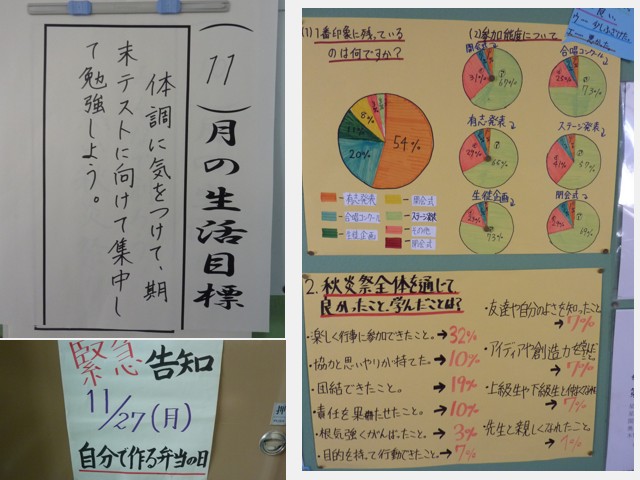 (11)月の生活目標
体調に気をつけて、期
末テストに向けて集中し
て勉強しよう。
緊急告知
11/27(月)
自分で作る弁当の日
押
(1)1番印象に残っている
のは何ですか?
54%
20%
11%
8%
有志発表
合唱コンクール
生徒企画
開会式
ステージ発表
その他
閉会式
(2)参加態度について
開会式
31%
合唱コンクール
73%
有志発表
29%
66%
ステージ発表
41%
生徒企画
73%
閉会式
2.秋炎祭全体を通じて
良かったこと、学んだことは?
・楽しく行事に参加できたこと。→32%
・協力と思いやりが持てた。→10%
・団結できたこと。→19%
・責任を果たせたこと。→10%
・根気強くがんばったこと。→3%
・目的を持って行動できたこと。→7%
・友達や自分のよさを知ったこと
→
・アイディアや創造力を
→7%
・上級生や下級生と
→7%
・先生と親しくなれたこと。
→